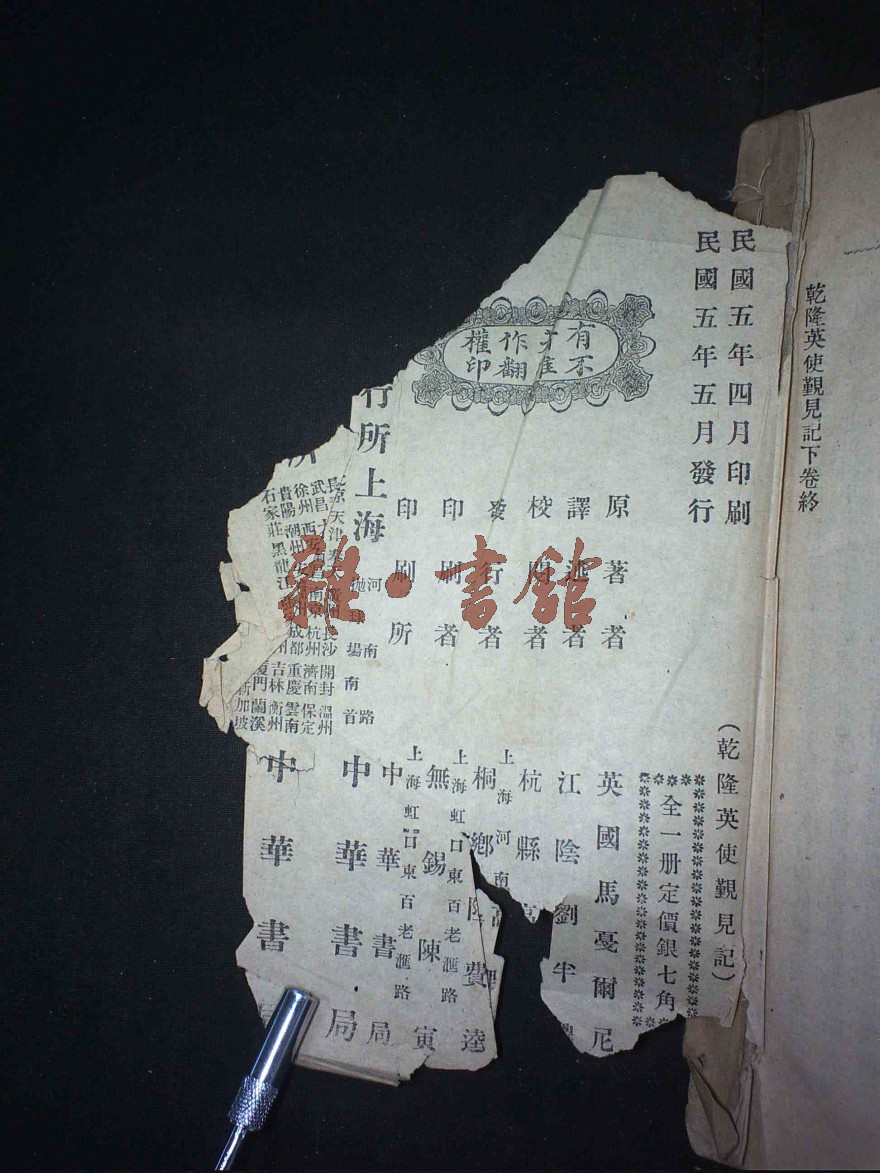 乾隆英使覲見記下卷終
民國五年四月印刷
民國五年五月發行
(乾隆英使覲見記)
全一册定價銀七角
有著作權
不准翻印
原著者 英國馬戛爾尼
譯述者 江陰劉半
校閱者 杭縣
發行者 桐鄉陸費逵
上海河南
印刷者 無錫陳寅
上海虹口東百老滙路
印刷所 中華書局
上海虹口東百老滙路
行所 上海 中華書局
河南路
抛球場南首
所 中華書
天津
長沙 開封 溫州
武昌 南京 杭州 濟南 保定
徐州 西安 成都 重慶 雲南
貴陽 潮州 吉林 衡州
石家莊 黑龍江 廈門 蘭溪
新加坡
雜·書館